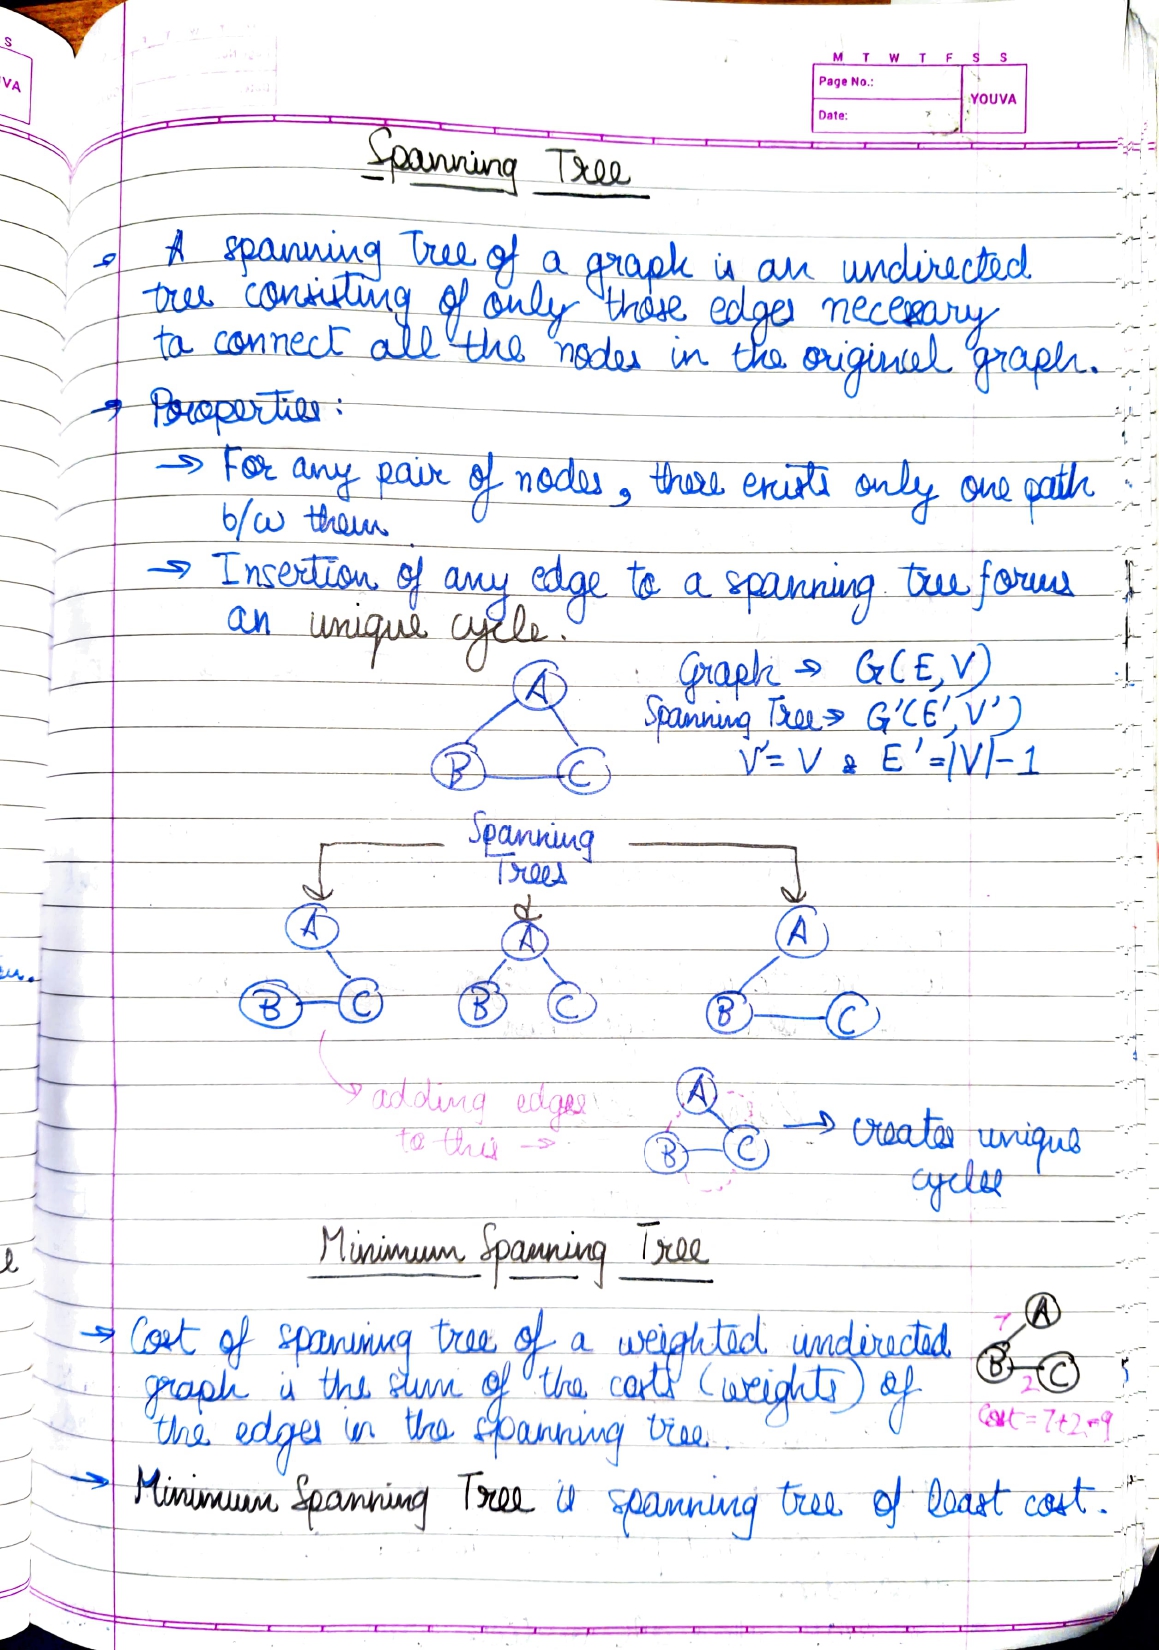 S
VA
M T W T F S S
Page No.:
YOUVA
Date:
Spanning Tree
A spanning tree of a graph is an undirected
tree consisting of only those edges necessary
to connect all the nodes in the original graph.
→ Properties:
→ For any pair of nodes, there exists only one path
b/w them
→ Insertion of any edge to a spanning tree forms
an unique cycle.
A
B C
Graph → G(E,V)
Spanning Tree → G'(E',V')
V'= V & E'=|V|-1
Spanning
Trees
A A A
B C B C B C
→ adding edges
to this →
A
B C
→ creates unique
cycles
Minimum Spanning Tree
→ Cost of spanining tree of a weighted undirected
graph is the sum of the costs (weights) of
the edges in the spanning tree.
7 A
B C
2
Cost = 7+2=9
→ Minimum Spanning Tree is spanning tree of least cost.